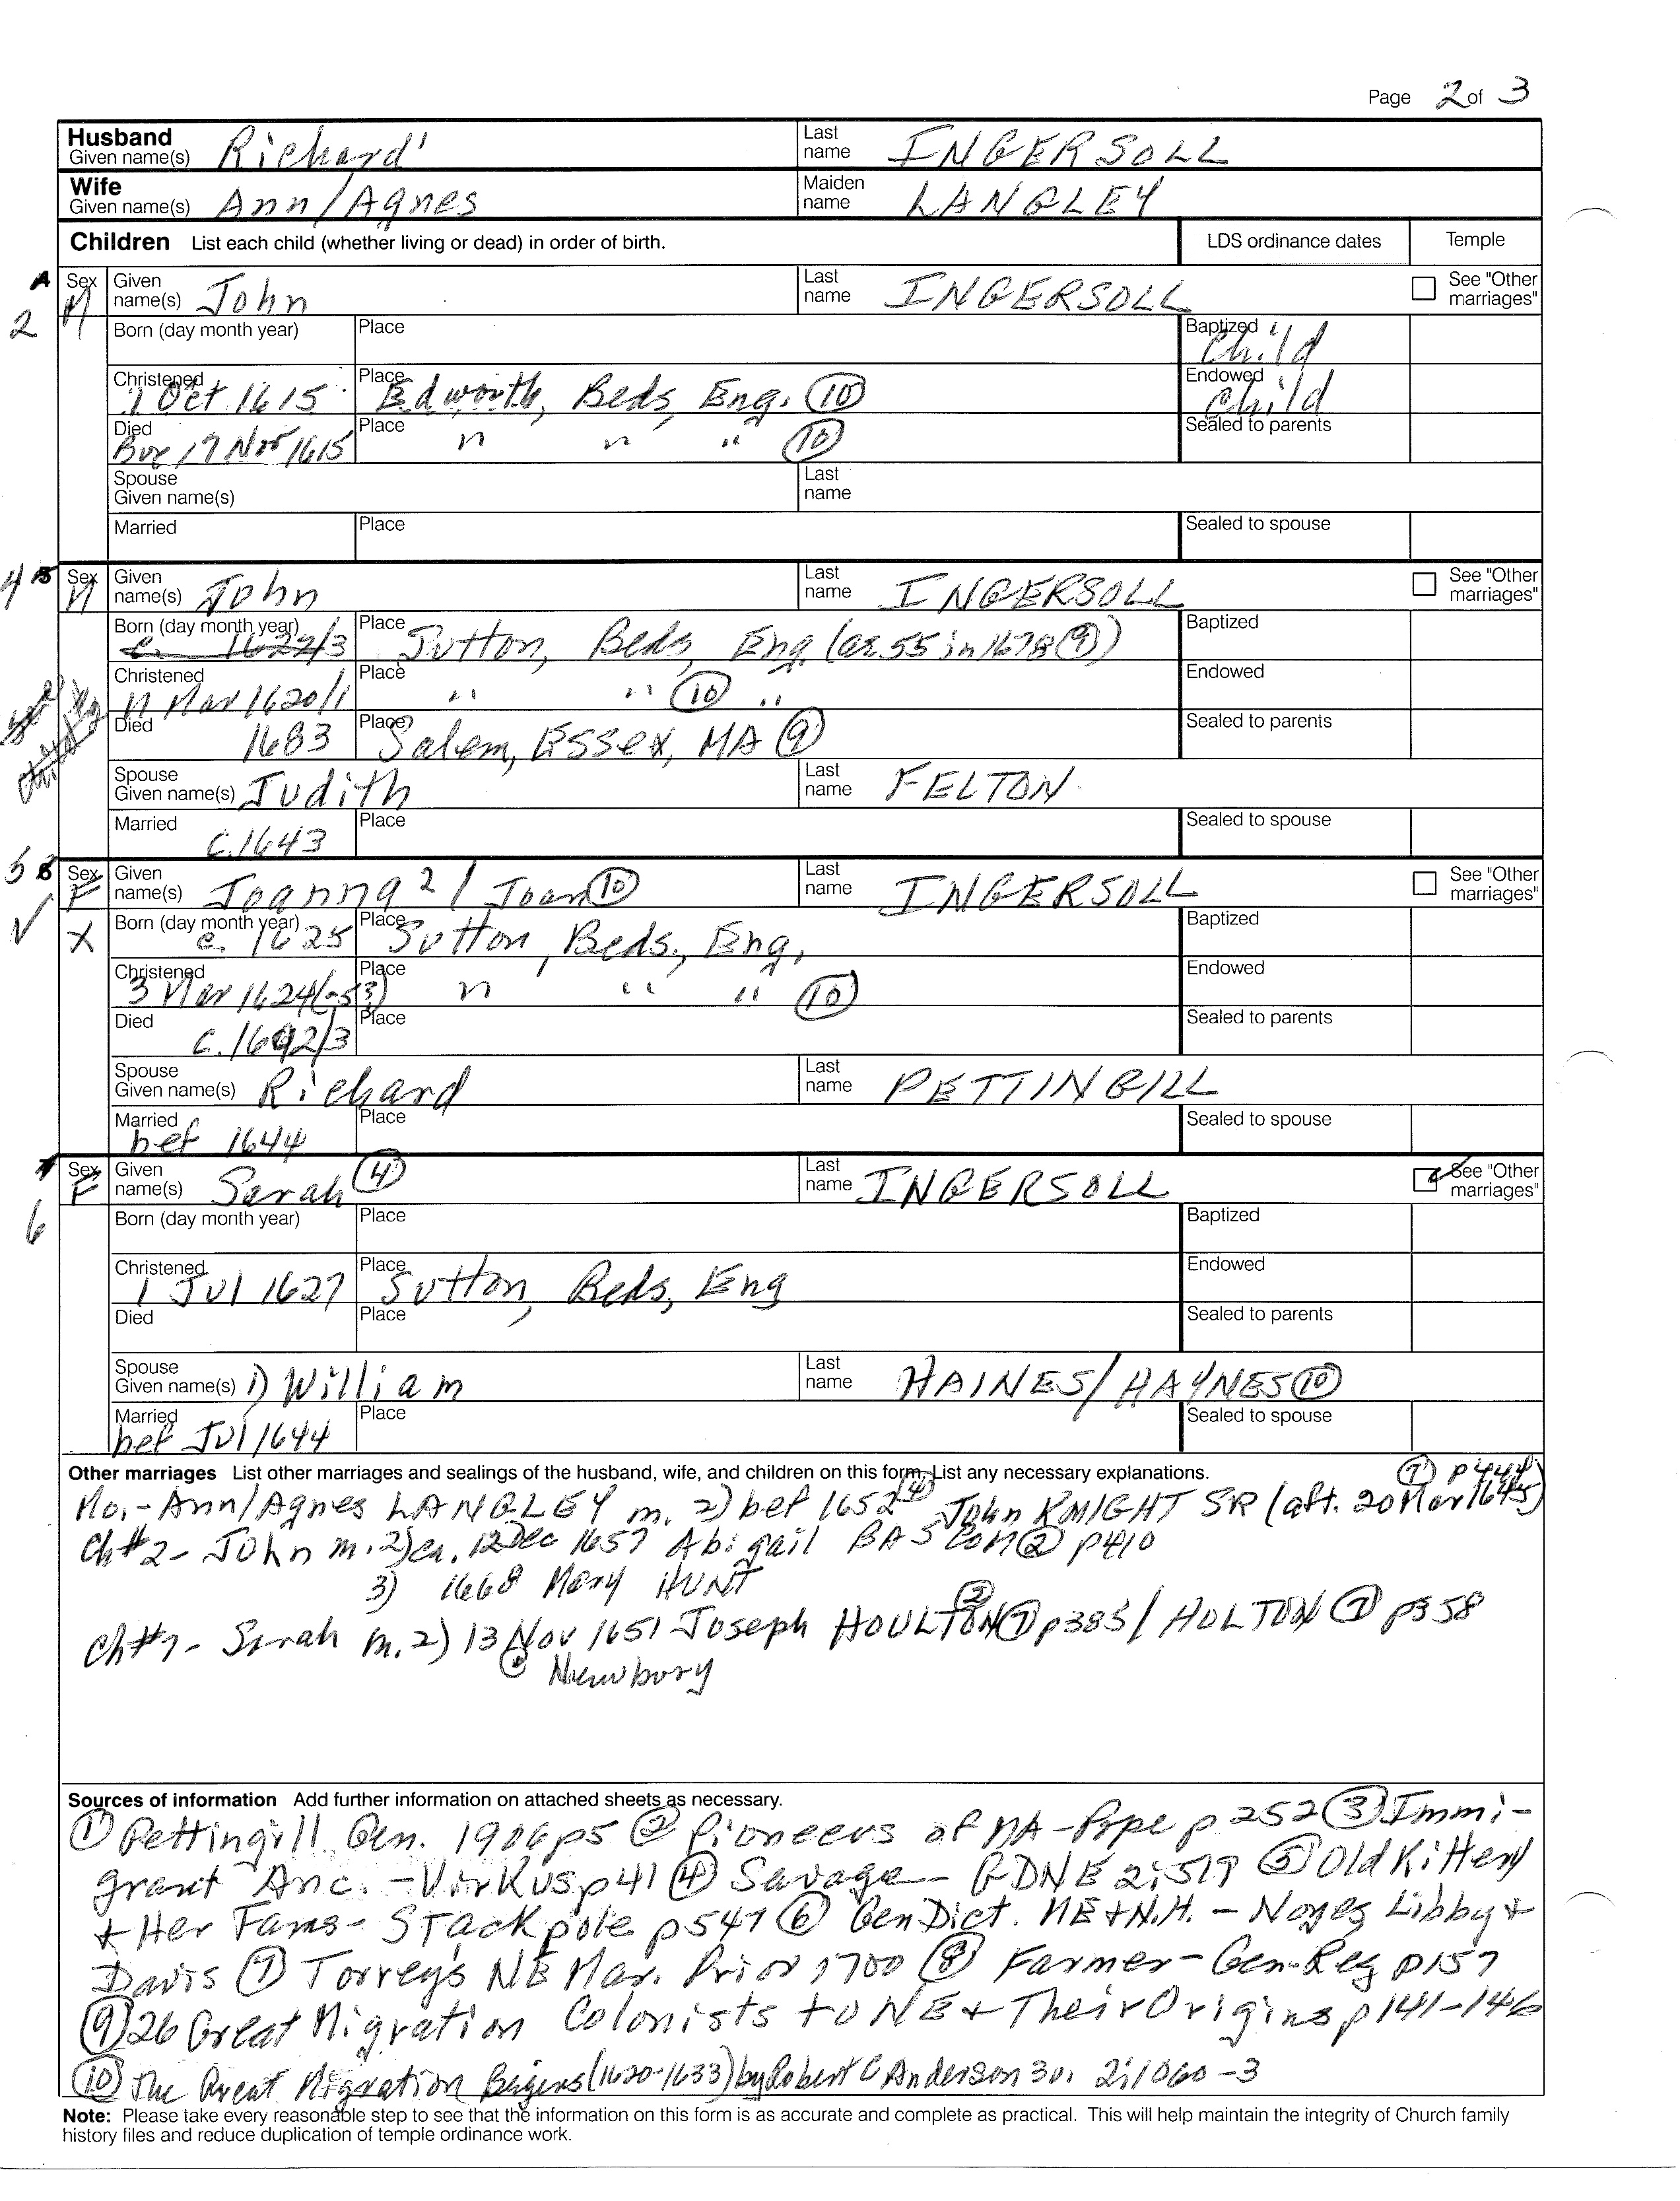 Page 2 of 3
Husband Given name(s) Richard' Last name INGERSOLL
Wife Given name(s) Ann/Agnes Maiden name LANGLEY
Children List each child (whether living or dead) in order of birth. LDS ordinance dates Temple
2 Sex M Given name(s) John Last name INGERSOLL See "Other marriages"
Born (day month year) Place Baptized Child
Christened 1 Oct 1615 Place Edworth, Beds, Eng. (10) Endowed Child
Died Bur 17 Nov 1615 Place " " " (10) Sealed to parents
Spouse Given name(s) Last name
Married Place Sealed to spouse
4 Sex M Given name(s) John Last name INGERSOLL See "Other marriages"
Born (day month year) c. 1622/3 Place Sutton, Beds, Eng (ae 55 in 1678 (9)) Baptized
Christened 11 Mar 1620/1 Place " " (10) " Endowed
Died 1683 Place Salem, Essex, MA (9) Sealed to parents
Spouse Given name(s) Judith Last name FELTON
Married c. 1643 Place Sealed to spouse
5 Sex F Given name(s) Joanna 2 / Joan (10) Last name INGERSOLL See "Other marriages"
X Born (day month year) c. 1625 Place Sutton, Beds., Eng. Baptized
Christened 3 Mar 1624 Place " " " (10) Endowed
Died c. 1692/3 Place Sealed to parents
Spouse Given name(s) Richard Last name PETTINGILL
Married bef 1644 Place Sealed to spouse
6 Sex F Given name(s) Sarah (4) Last name INGERSOLL See "Other marriages"
Born (day month year) Place Baptized
Christened 1 Jul 1627 Place Sutton, Beds, Eng Endowed
Died Place Sealed to parents
Spouse Given name(s) 1) William Last name HAINES/HAYNES (10)
Married bef Jul 1644 Place Sealed to spouse
Other marriages List other marriages and sealings of the husband, wife, and children on this form. List any necessary explanations. (7) p444
Mo.- Ann/Agnes LANGLEY m. 2) bef 1652 (4) John KNIGHT SR (aft. 20 Mar 1645)
Ch#2- John m. 2) ca. 12 Dec 1657 Abigail BASCOM (2) p410
3) 1668 Mary HUNT
Ch#7- Sarah m. 2) 13 Nov 1651 Joseph HOULTON (2) (7) p385 / HOLTON (7) p358
Newbury
Sources of information Add further information on attached sheets as necessary.
(1) Pettingill Gen. 1906 p5 (2) Pioneers of MA - Pope p 252 (3) Immi-
grant Anc. - Virkus p41 (4) Savage - GDNE 2:519 (5) Old Kittery
+ Her Fams - Stackpole p547 (6) Gen Dict. ME + N.H. - Noyes Libby +
Davis (7) Torrey's NE Mar. Prior 1700 (8) Farmer - Gen-Reg p157
(9) 26 Great Migration Colonists to NE + Their Origins p 141-146
(10) The Great Migration Begins (1620-1633) by Robert C Anderson 3v. 2:1060-3
Note: Please take every reasonable step to see that the information on this form is as accurate and complete as practical. This will help maintain the integrity of Church family
history files and reduce duplication of temple ordinance work.